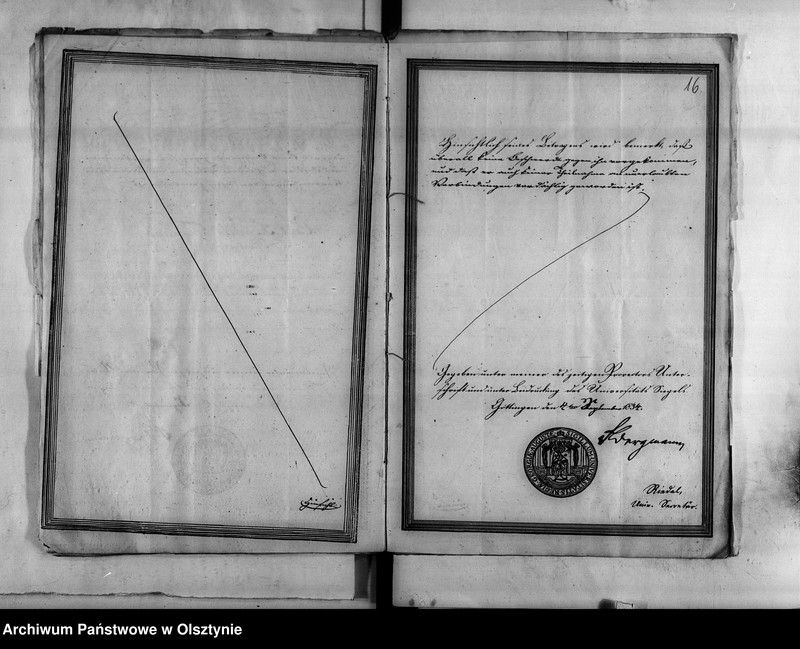 16
Hinsichtlich seines Betragens wird bemerkt, daß
überall keine Beschwerde gegen ihn vorgekommen,
und daß er auch keiner Theilnahme an unerlaubten
Verbindungen verdächtig geworden ist.
Gegeben unter meiner des zeitigen Prorectors Unter-
schrift und unter Bedruckung des Universitäts Siegels.
Göttingen den September 1834.
Bergmann
Riedel,
Univ. Secretär.
Hinsicht
Archiwum Państwowe w Olsztynie